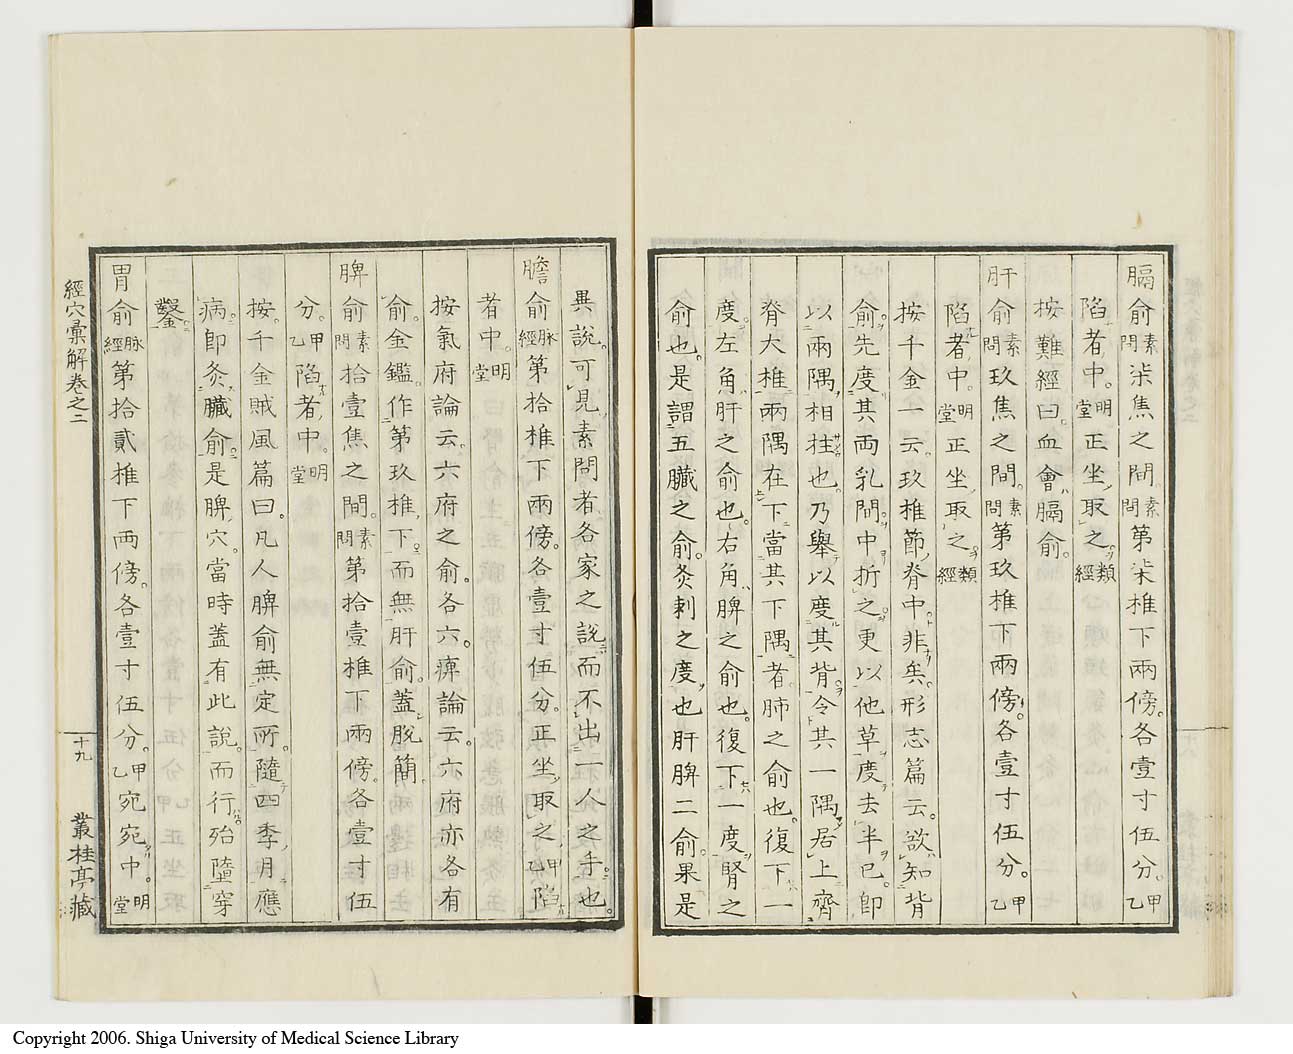 膈俞素問柒焦之間素問第柒椎下兩傍各壹寸伍分甲乙
陷者中明堂正坐取之類經
按難經曰血會膈俞
肝俞素問玖焦之間素問第玖椎下兩傍各壹寸伍分甲乙
陷者中明堂正坐取之類經
按千金一云玖椎節脊中非矣形志篇云欲知背
俞先度其两乳間中折之更以他草度去半已即
以兩隅相拄也乃舉以度其背令其一隅居上齊
脊大椎兩隅在下當其下隅者肺之俞也復下一
度左角肝之俞也右角脾之俞也復下一度腎之
俞也是謂五臟之俞灸刺之度也肝脾二俞果是
異說可見素問者各家之說而不出一人之手也
膽俞脉經第拾椎下兩傍各壹寸伍分正坐取之甲乙陷
者中明堂
按氣府論云六府之俞各六痺論云六府亦各有
俞金鑑作第玖椎下而無肝俞蓋脫簡
脾俞素問拾壹焦之間素問第拾壹椎下兩傍各壹寸伍
分甲乙陷者中明堂
按千金賊風篇曰凡人脾俞無定所隨四季月應
病即灸臟俞是脾穴當時蓋有此說而行殆墮穿
鑿
胃俞脉經第拾貳椎下两傍各壹寸伍分甲乙宛宛中明堂
經穴彙解卷之二
十九
叢桂亭藏
Copyright 2006. Shiga University of Medical Science Library